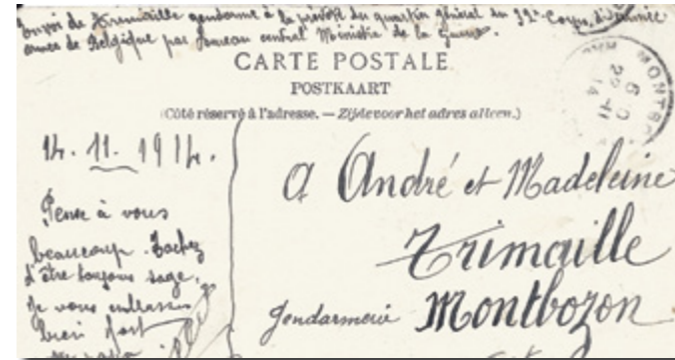 Envoi de Trimaille gendarme à la prévôté du quartier général du 32e Corps d'Armée
armée de Belgique par bureau central Ministre de la Guerre.
CARTE POSTALE
POSTKAART
(Côté réservé à l'adresse. — Zijde voor het adres alleen.)
14. 11. 1914.
Pense à vous
beaucoup. Tachez
d'être toujours sage.
Je vous embrasse
bien fort
papa
A André et Madeleine
Trimaille
Gendarmerie Montbozon
MONTBO
29-11
14